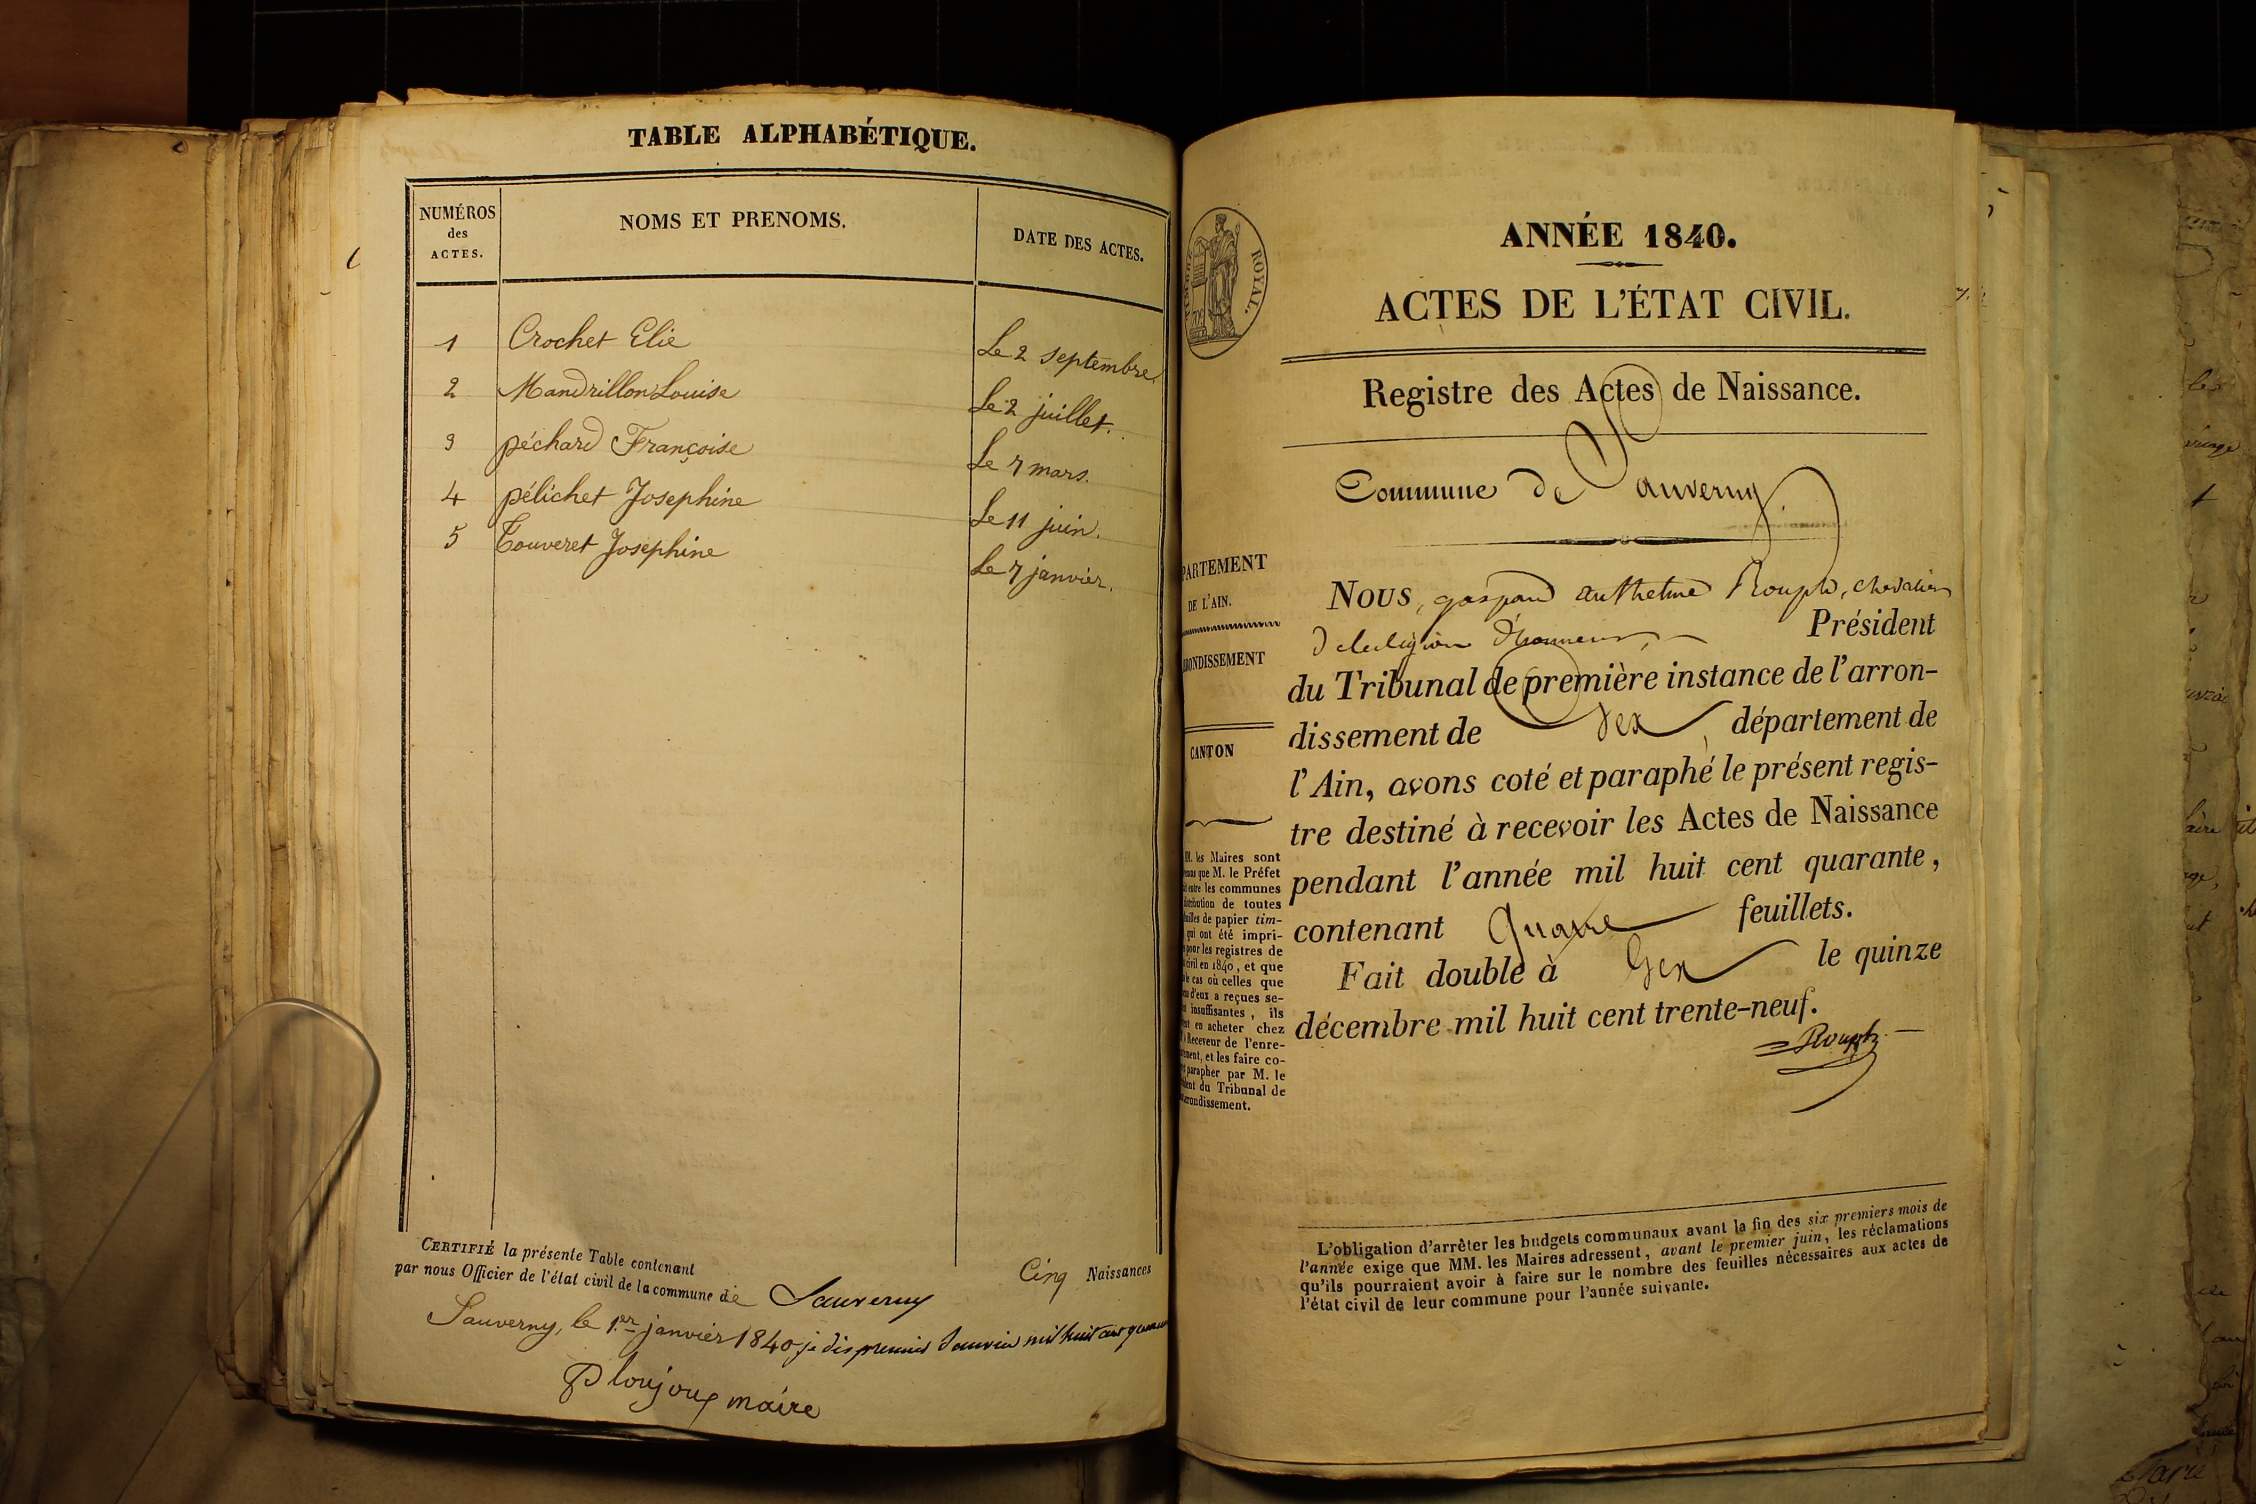 TABLE ALPHABÉTIQUE.
NUMÉROS
des
ACTES.
NOMS ET PRENOMS.
DATE DES ACTES.
1 Crochet Elie Le 2 septembre.
2 Mandrillon Louise Le 2 juillet.
3 péchard Françoise Le 7 mars.
4 pélichet Josephine Le 11 juin.
5 Touveret Josephine Le 7 janvier.
CERTIFIÉ la présente Table contenant Cinq Naissances
par nous Officier de l'état civil de la commune de Sauverny
Sauverny, le 1.er janvier 1840 je dis premier Janvier mil huit cent
maire
TIMBRE ROYAL.
ANNÉE 1840.
ACTES DE L'ÉTAT CIVIL.
Registre des Actes de Naissance.
Commune de Sauverny.
PARTEMENT
DE L'AIN.
ONDISSEMENT
CANTON
M. les Maires sont
que M. le Préfet
entre les communes
de toutes
de papier tim-
qui ont été impri-
pour les registres de
civil en 1840, et que
cas où celles que
d'eux a reçues se-
insuffisantes, ils
en acheter chez
Receveur de l'enre-
et les faire co-
parapher par M. le
du Tribunal de
rondissement.
NOUS, gaspard anthelme Rouph, chevalier
de la légion d'honneur, Président
du Tribunal de première instance de l'arron-
dissement de Gex, département de
l'Ain, avons coté et paraphé le présent regis-
tre destiné à recevoir les Actes de Naissance
pendant l'année mil huit cent quarante,
contenant quatre feuillets.
Fait double à Gex le quinze
décembre mil huit cent trente-neuf.
Rouph
L'obligation d'arrêter les budgets communaux avant la fin des six premiers mois de
l'année exige que MM. les Maires adressent, avant le premier juin, les réclamations
qu'ils pourraient avoir à faire sur le nombre des feuilles nécessaires aux actes de
l'état civil de leur commune pour l'année suivante.